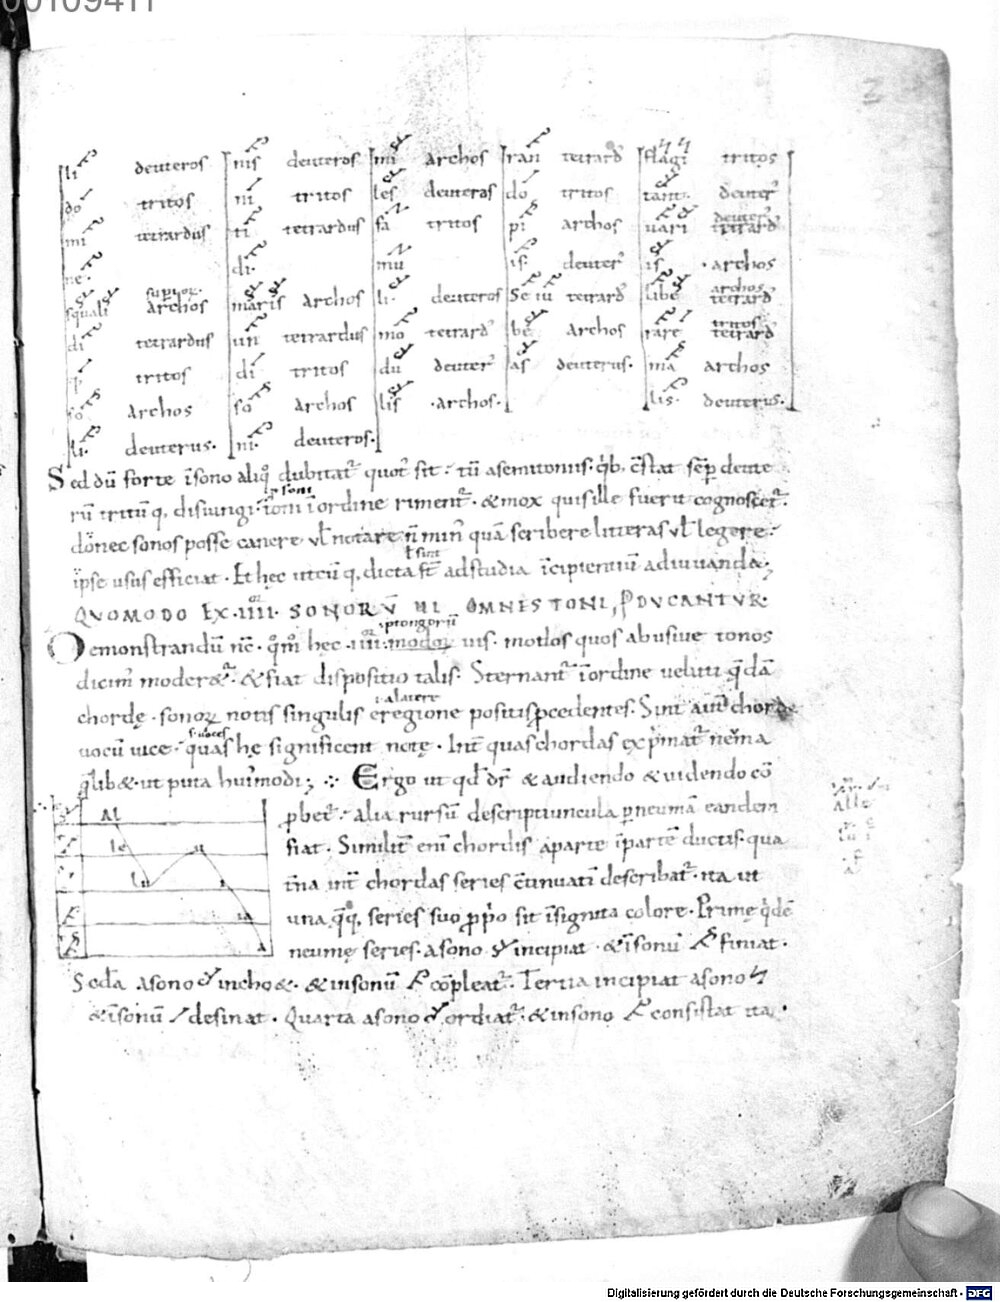 00109411
li deuteros nis deuteros mi archos ran tetrard flagi tritos
do tritos ni tritos les deuteros do tritos tant deuter
mi tetrardus ti tetrardus sa tritos pi archos uari deuter tetrard
ne di mu is deuter is archos
squali superior archos maris archos li deuteros Se iu tetrard libe archos tetrard
di tetrardus un tetrardus mo tetrard be archos rare tritos tetrard
tritos di tritos du deuter as deuterus. ma archos
so archos so archos lis archos. lis. deuterus.
li. deuterus. ni. deuteros.
Sed dū forte īsono aliq̊ dubitat᷑ quot᷑ sit. tū asemitoniis. q̄b. c̄stat sēp deute
rū tritūq, disiungi. toni īordine riment᷑. & mox quis ille fuerit cognoscet᷑.
dōnec sonos posse canere ul notare n̄ min᷑ quā scribere litteras ul legere.
ipse usus efficiat. Et hec utcūq, dicta st̄ ad studia īcipientiū adiuuanda.
QVOMODO EX .IIII. SONORV̄ VI OMNES TONI, PDVCANTVR.
ptongorū
Demonstrandū nc̄. q̊m̊ hęc .IIII. modoꝝ uis. modos quos abusiue tonos
dicim᷑ moderet᷑. & fiat dispositio talis. Sternant᷑ īordine ueluti q̄dā
a latere
chordę. sonoꝝ notis singulis eregione positis p̄cedentes. Sint aut̄ chorde
s. uoces
uocū uice. quas hę significent notę. Int᷑ quas chordas exp̄mat᷑ neuma
q̄lib&. ut puta hui᷑modi; Ergo ut qd dr̄ & audiendo & uidendo cō
Al
p̄bet᷑. alia rursū descriptiuncula p neumā eandem
le
fiat. Similit᷑ eni chordis aparte īpartē ductis. qua
lu
t᷑na int᷑ chordas series c̄tinuati describat᷑. ita ut
ia
una q̄q, series suo pp̄o sit īsignita colore. Primę q̄dē
neumę series. a sono incipiat. & īsonū finiat.
Scda a sono incho&. & insonū cōpleat᷑. Tertia incipiat a sono
& īsonū desinat. Quarta a sono ordiat᷑. & insono consistat ita.
Digitalisierung gefördert durch die Deutsche Forschungsgemeinschaft - DFG